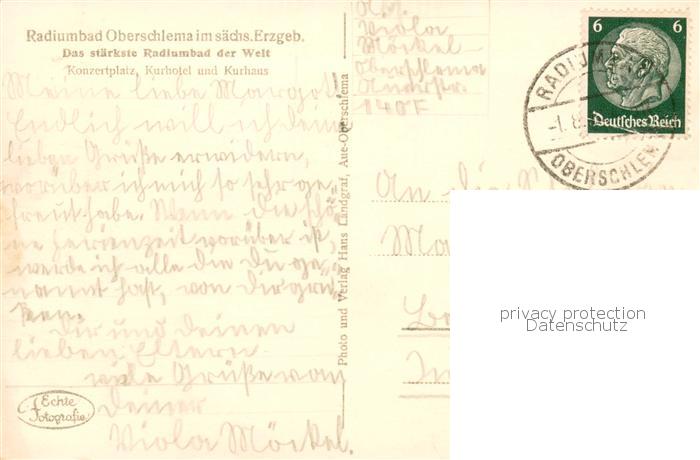 Radiumbad Oberschlema im sächs. Erzgeb.
Das stärkste Radiumbad der Welt
Konzertplatz, Kurhotel und Kurhaus
Meine liebe Margot!
Endlich will ich dein
lieben Grüße erwidern,
worüber ich mich so sehr ge-
freut habe. Wenn die schö-
ne Ferienzeit vorüber ist,
werde ich alle die Du ge-
nannt hast, von Dir grü-
ßen.
Dir und deinen
lieben Eltern
viele Grüße von
deiner
Viola Möckel.
Echte
Fotografie
Photo und Verlag Hans Landgraf, Aue-Oberschlema
Viola
Möckel
Oberschlema
140F
6 6
Deutsches Reich
RADIUMBAD
-1. 8.
OBERSCHLEMA
An die
privacy protection
Datenschutz